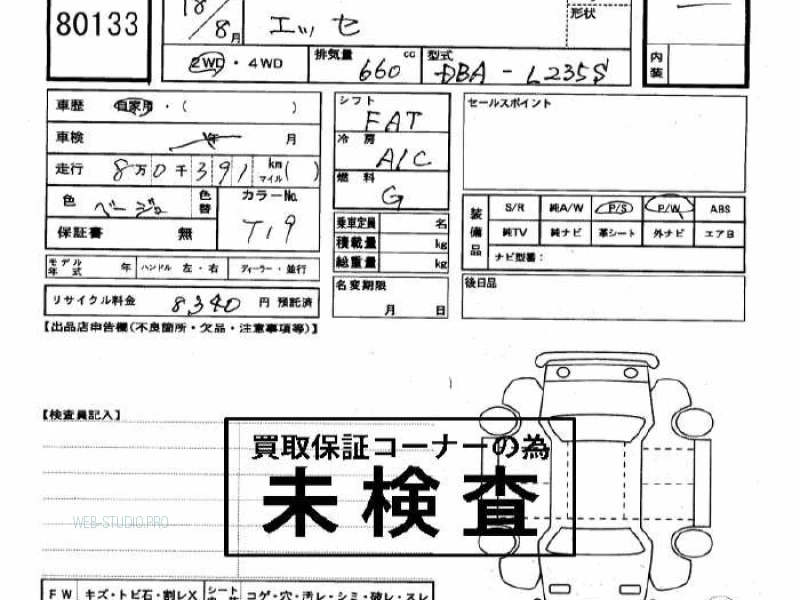 80133
18/8月
エッセ
形状
2WD・4WD
排気量 660 cc
型式 DBA-L235S
内装
車歴 自家用・( )
車検 年 月
走行 8万0千391 km マイル( )
色 ベージュ 色替
カラーNo. T19
保証書 無
モデル年式 年
ハンドル 左・右
ディーラー・並行
リサイクル料金 8340 円 預託済
シフト FAT
冷房 A/C
燃料 G
乗車定員 名
積載量 kg
総重量 kg
名変期限 月 日
セールスポイント
装備品
S/R 純A/W P/S P/W ABS
純TV 純ナビ 革シート 外ナビ エアB
ナビ型番:
後日品
【出品店申告欄(不良箇所・欠品・注意事項等)】
【検査員記入】
買取保証コーナーの為
未検査
WEB-STUDIO.PRO
FW キズ・トビ石・割レX シート コゲ・穴・汚レ・シミ・破レ・スレ